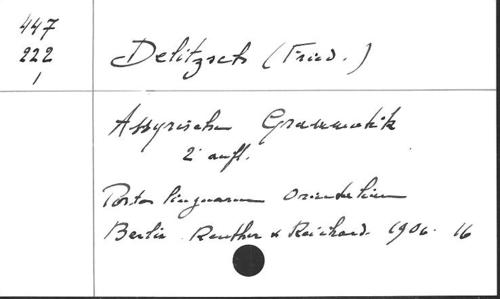 447
222
1
Delitzsch (Fried.)
Assyrische Grammatik
2 aufl.
Porta linguarum Orientalium
Berlin Reuther & Reichard. 1906. 16